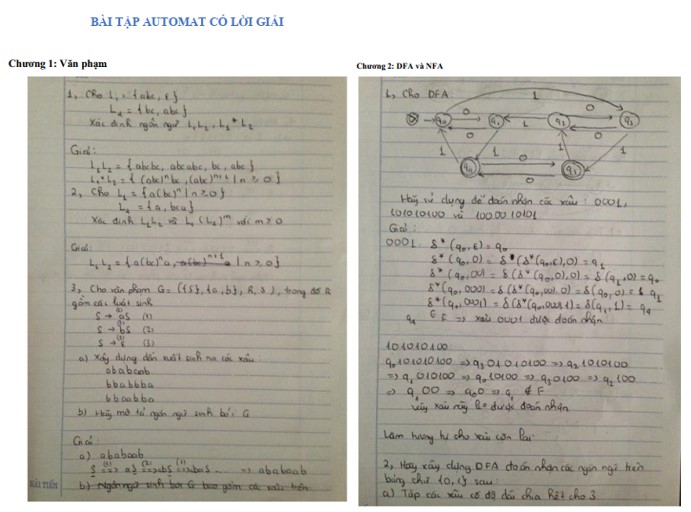 BÀI TẬP AUTOMAT CÓ LỜI GIẢI
Chương 1: Văn phạm
1, Cho L₁ = {abc, ε}
L₂ = {bc, abc}
Xác định ngôn ngữ L₁L₂, L₁* L₂
Giải:
L₁L₂ = {abcbc, abcabc, bc, abc}
L₁*L₂ = {(abc)ⁿbc, (abc)ⁿ⁺¹ | n ≥ 0}
2, Cho L₁ = {a(bc)ⁿ | n ≥ 0}
L₂ = {a, bca}
Xác định L₁L₂ và L₁(L₂)ᵐ với m ≥ 0
Giải:
L₁L₂ = {a(bc)ⁿa, a(bc)ⁿ⁺¹a | n ≥ 0}
3, Cho văn phạm G = ({S}, {a, b}, R, S), trong đó R
gồm các luật sinh
S → aS (1)
S → bS (2)
S → ε (3)
a) Xây dựng dẫn xuất sinh ra các xâu
ababaab
bbabbba
bbaabba
b) Hãy mô tả ngôn ngữ sinh bởi G
Giải:
a) ababaab
b) Ngôn ngữ sinh bởi G bao gồm các xâu trên
BÀI TIẾN
Chương 2: DFA và NFA
1, Cho DFA:
Hãy sử dụng để đoán nhận các xâu: 0001,
1010100 và 1000010101
Giải:
0001: δ*(q₀, ε) = q₀
δ*(q₀, 0) = δ(δ*(q₀, ε), 0) = q₁
δ*(q₀, 00) = δ(δ*(q₀, 0), 0) = δ(q₁, 0) = q₀
δ*(q₀, 000) = δ(δ*(q₀, 00), 0) = δ(q₀, 0) = q₁
δ*(q₀, 0001) = δ(δ*(q₀, 000), 1) = δ(q₁, 1) = q₄
q₄ ∈ F ⇒ xâu 0001 được đoán nhận
101010100:
⇒ q₁ ∉ F
Vậy xâu này ko được đoán nhận
Làm tương tự cho xâu còn lại
2, Hãy xây dựng DFA đoán nhận các ngôn ngữ trên
bảng chữ {0, 1} sau:
a) Tập các xâu có độ dài chia hết cho 3